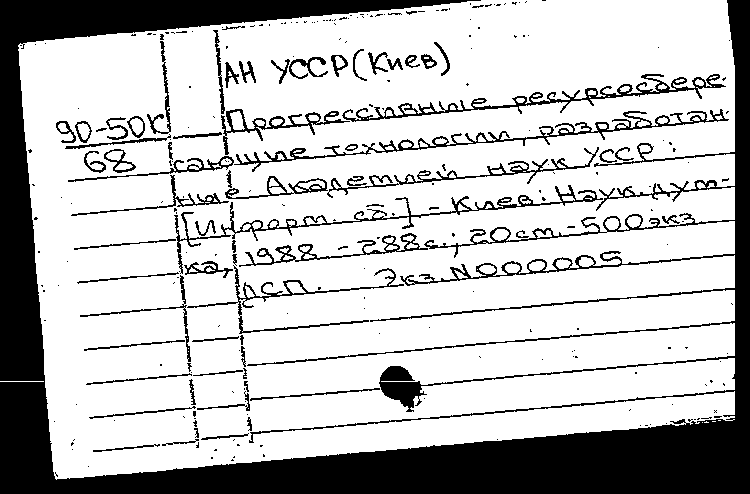 АН УССР (Киев)
90-50К Прогрессивные ресурсосбере-
68 сающие технологии, разработан-
ные Академией наук УССР:
[Информ. сб.] - Киев: Наук. дум-
ка, 1988 - 288с.; 20см. - 500экз.
ДСП. Экз. N000005